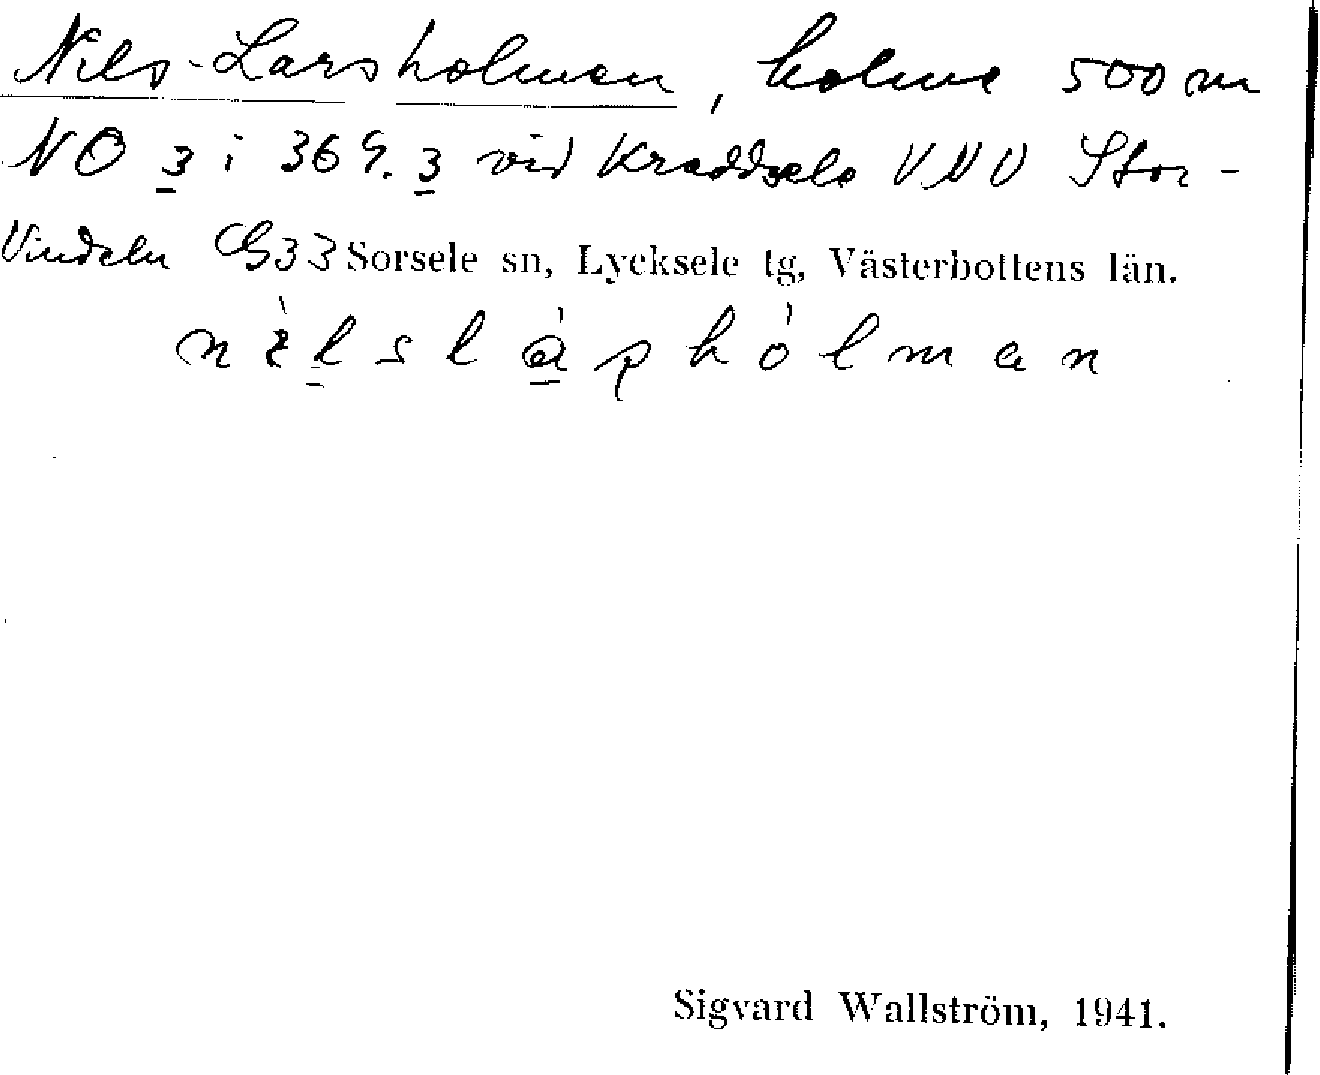 Nils-Larsholmen, holme 500 m
NO 3 i 369.3 vid Kraddsele VNV Stor-
Vindeln G33 Sorsele sn, Lycksele tg, Västerbottens län.
Sigvard Wallström, 1941.